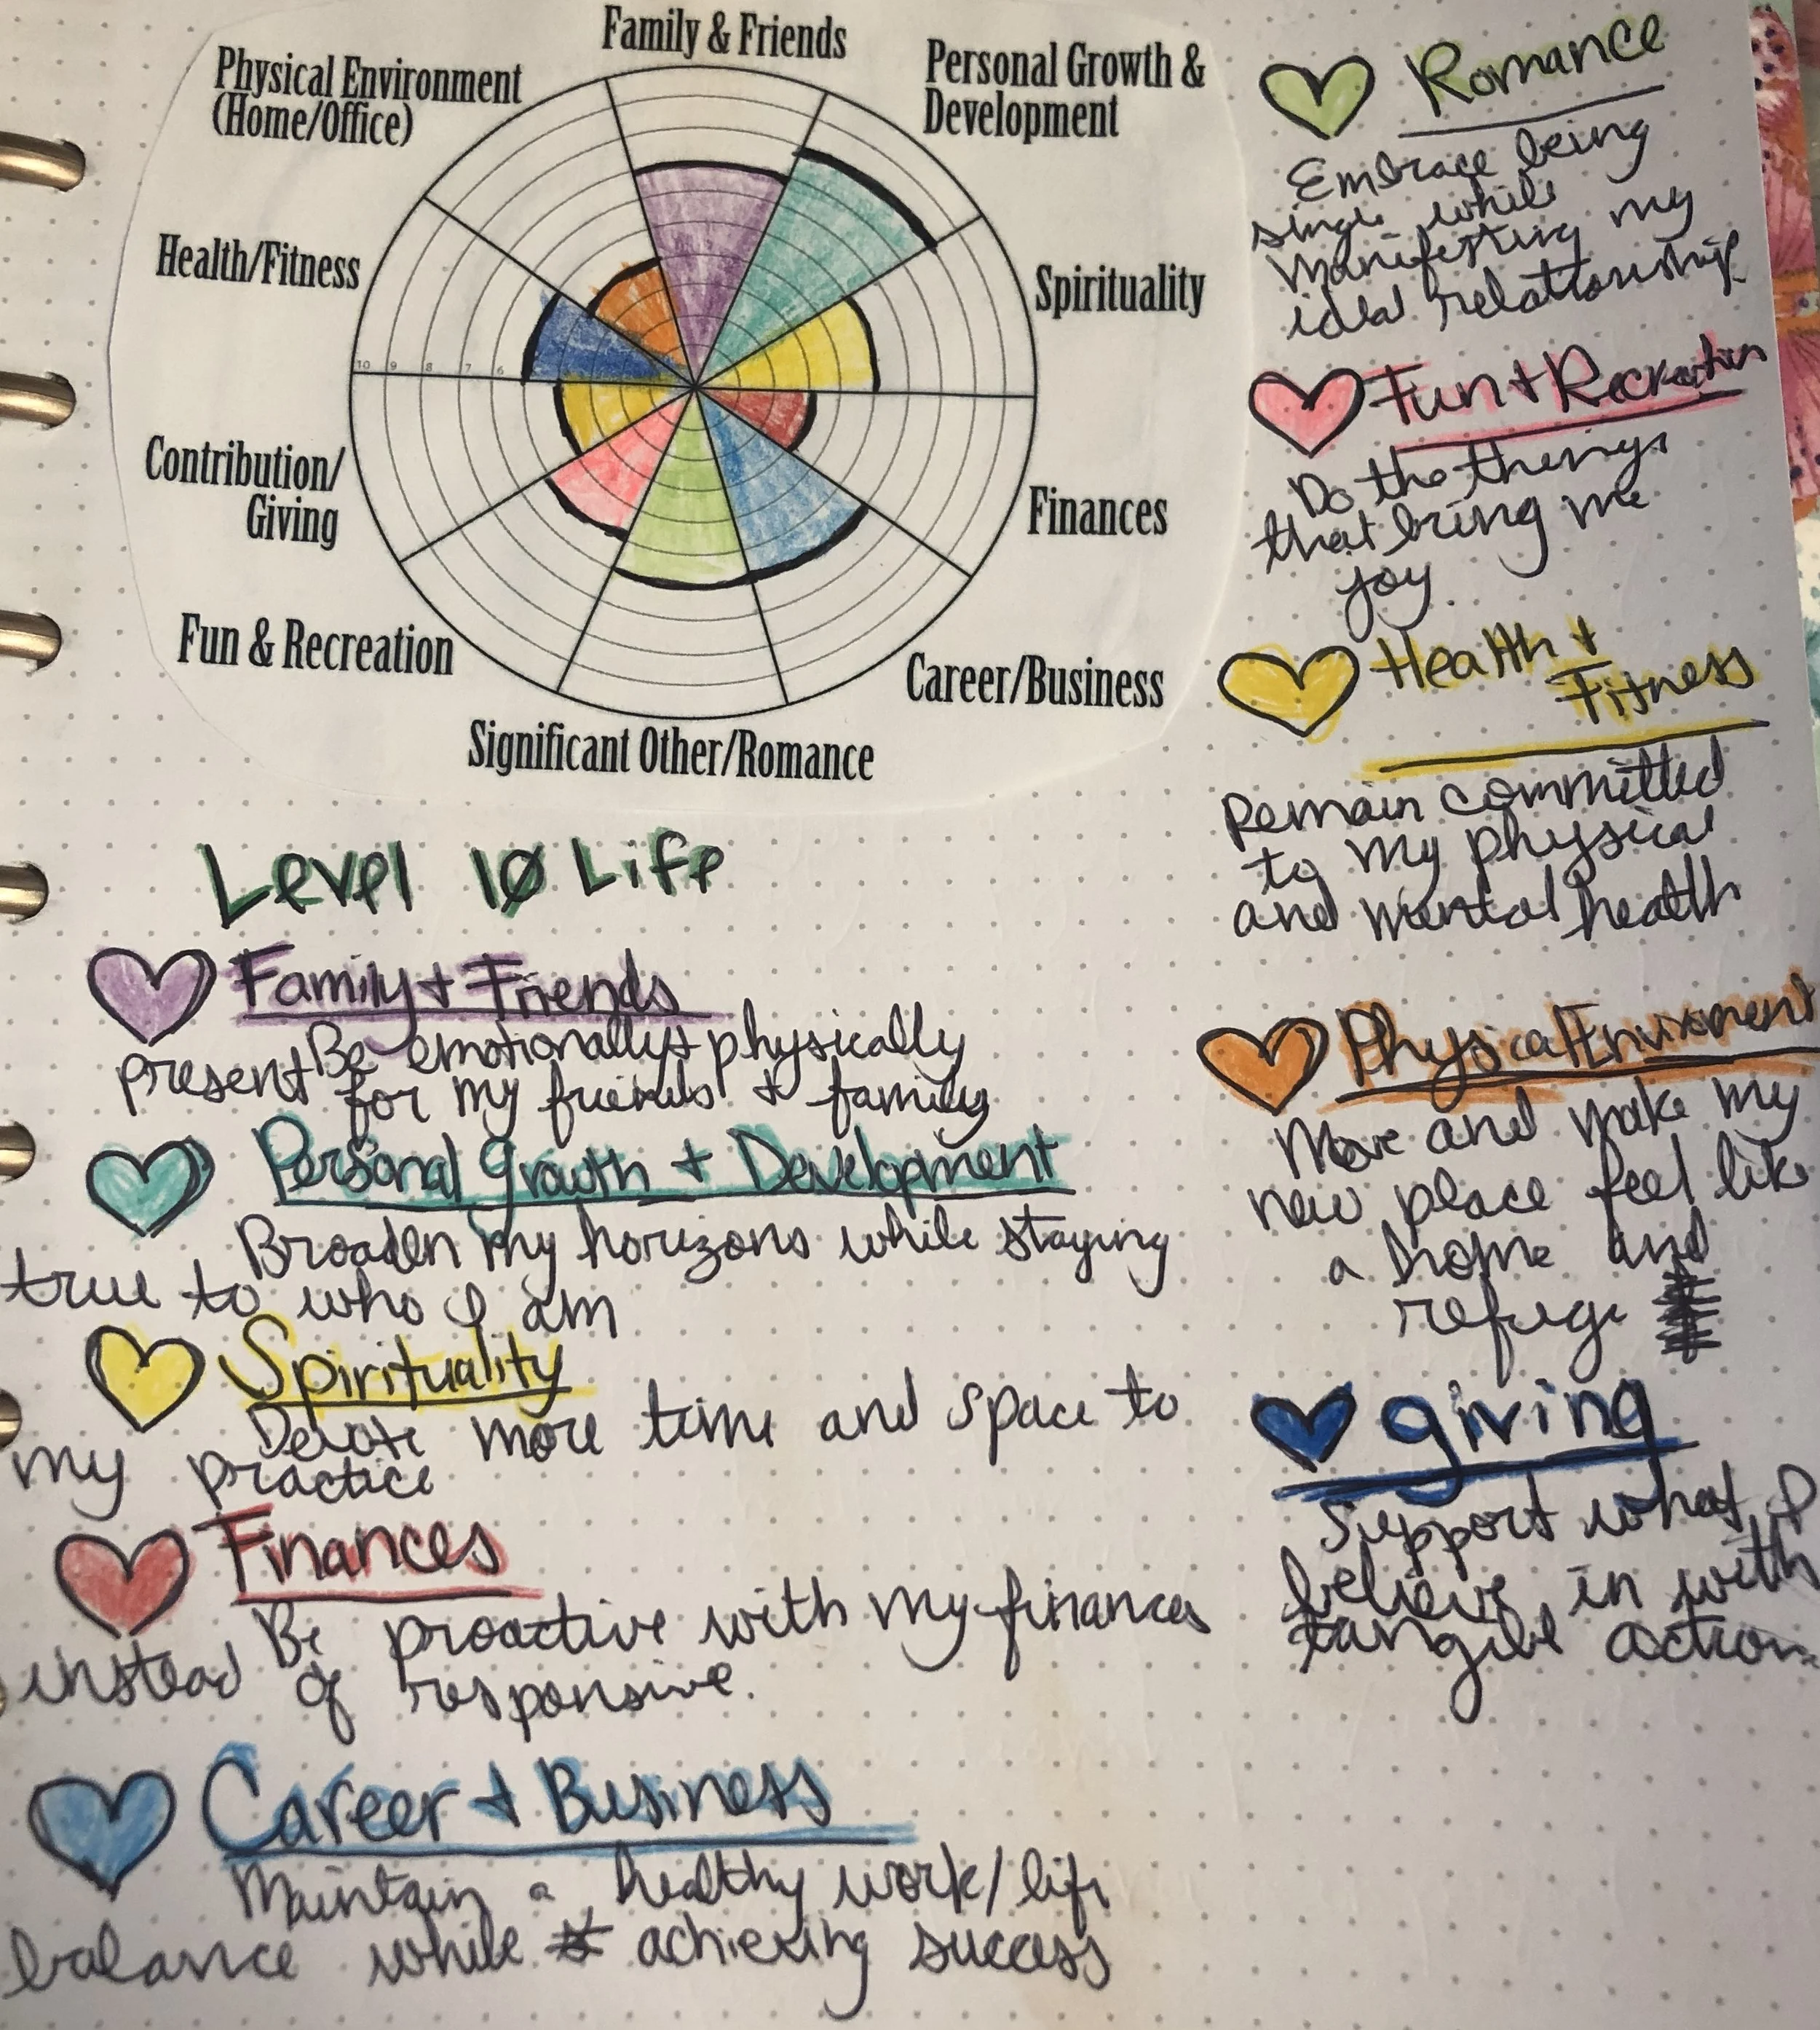 Family & Friends
Personal Growth &
Development
Physical Environment
(Home/Office)
Spirituality
Health/Fitness
10 9 8 7 6
Contribution/
Giving
Finances
Fun & Recreation
Career/Business
Significant Other/Romance
Level 10 Life
Family + Friends
Be emotionally + physically
present for my friends + family
Personal Growth + Development
Broaden my horizons while staying
true to who I am
Spirituality
Devote more time and space to
my practice
Finances
Be proactive with my finances
instead of responsive.
Career + Business
Maintain a healthy work/life
balance while achieving success
Romance
Embrace being
single while
manifesting my
ideal relationship
Fun + Recreation
Do the things
that bring me
joy.
Health +
Fitness
Remain committed
to my physical
and mental health
Physical Enviroment
Move and make my
new place feel like
a home and
refuge
giving
Support what I
believe in with
action